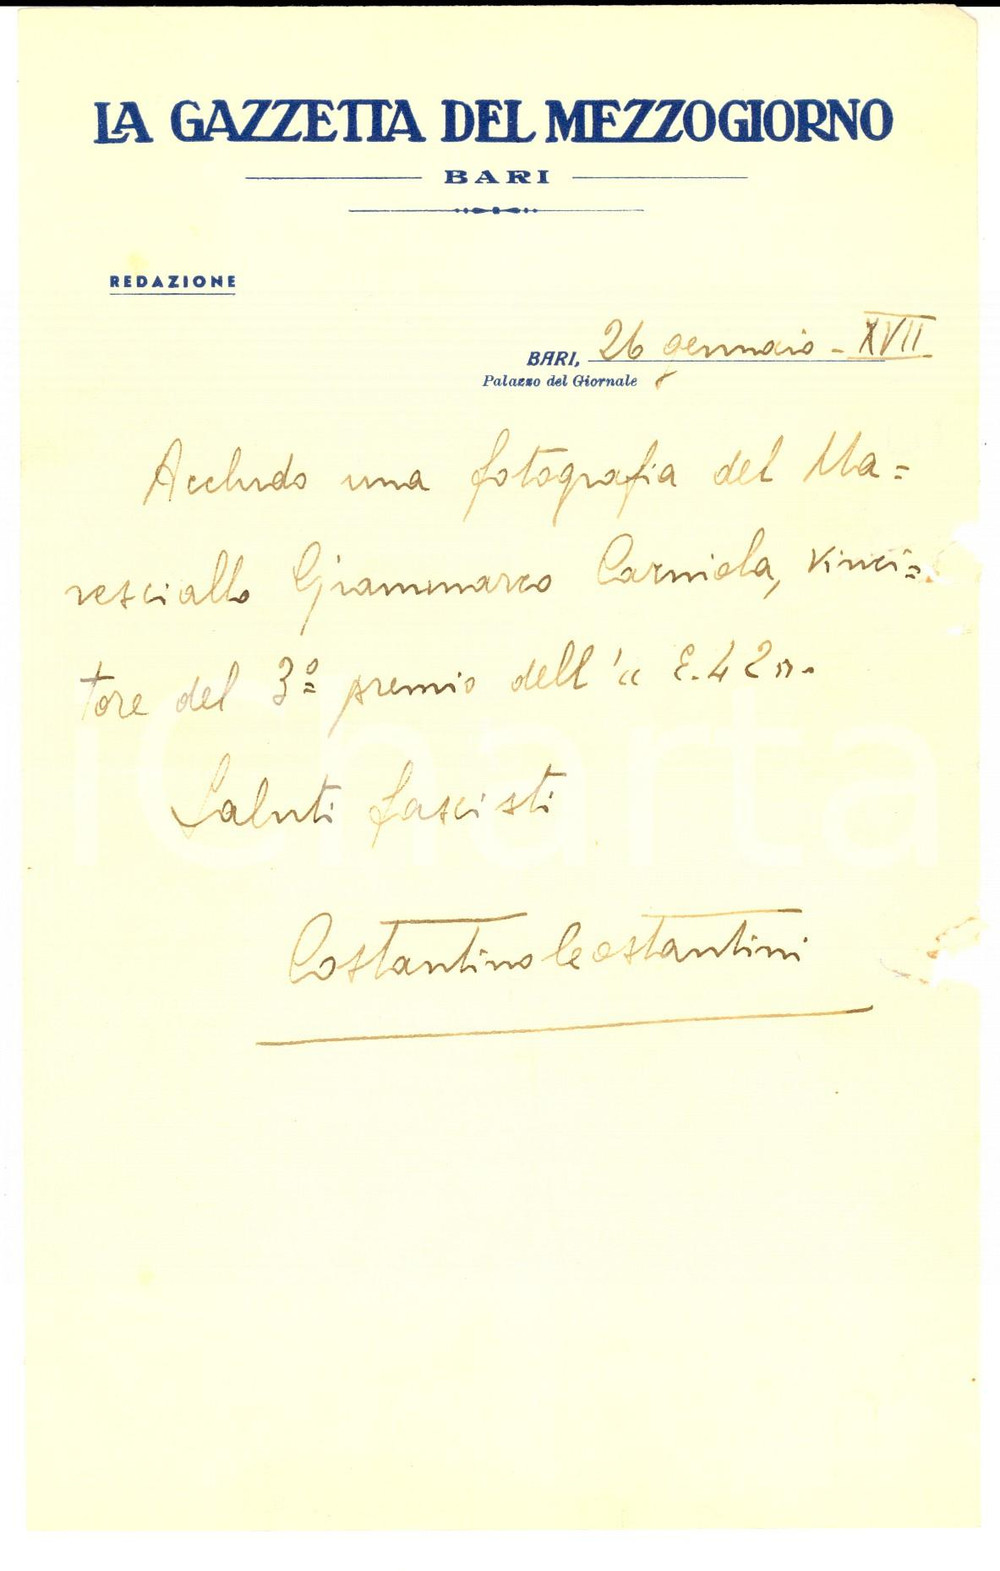 LA GAZZETTA DEL MEZZOGIORNO
BARI
REDAZIONE
BARI, 26 gennaio - XVII
Palazzo del Giornale
Accludo una fotografia del Ma=
resciallo Giammarco Carniola, vinci=
tore del 3º premio dell'« E.42».
iCharta
Saluti fascisti
Costantino Costantini